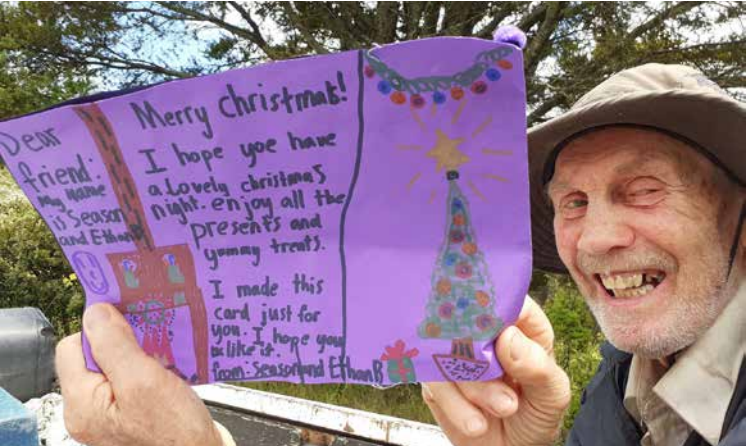 Dear
friend.
My name
is Season
and Ethan R
Merry Christmas!
I hope yoe have
a Lovely christmas
night. enjoy all the
presents and
yummy treats.
I made this
card just for
you. I hope you
like it.
from: Season and Ethan R